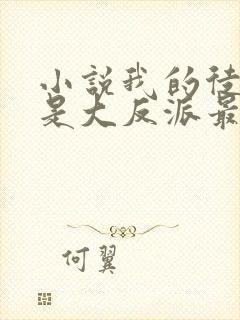 小説我的徒
是大反派最
何翼